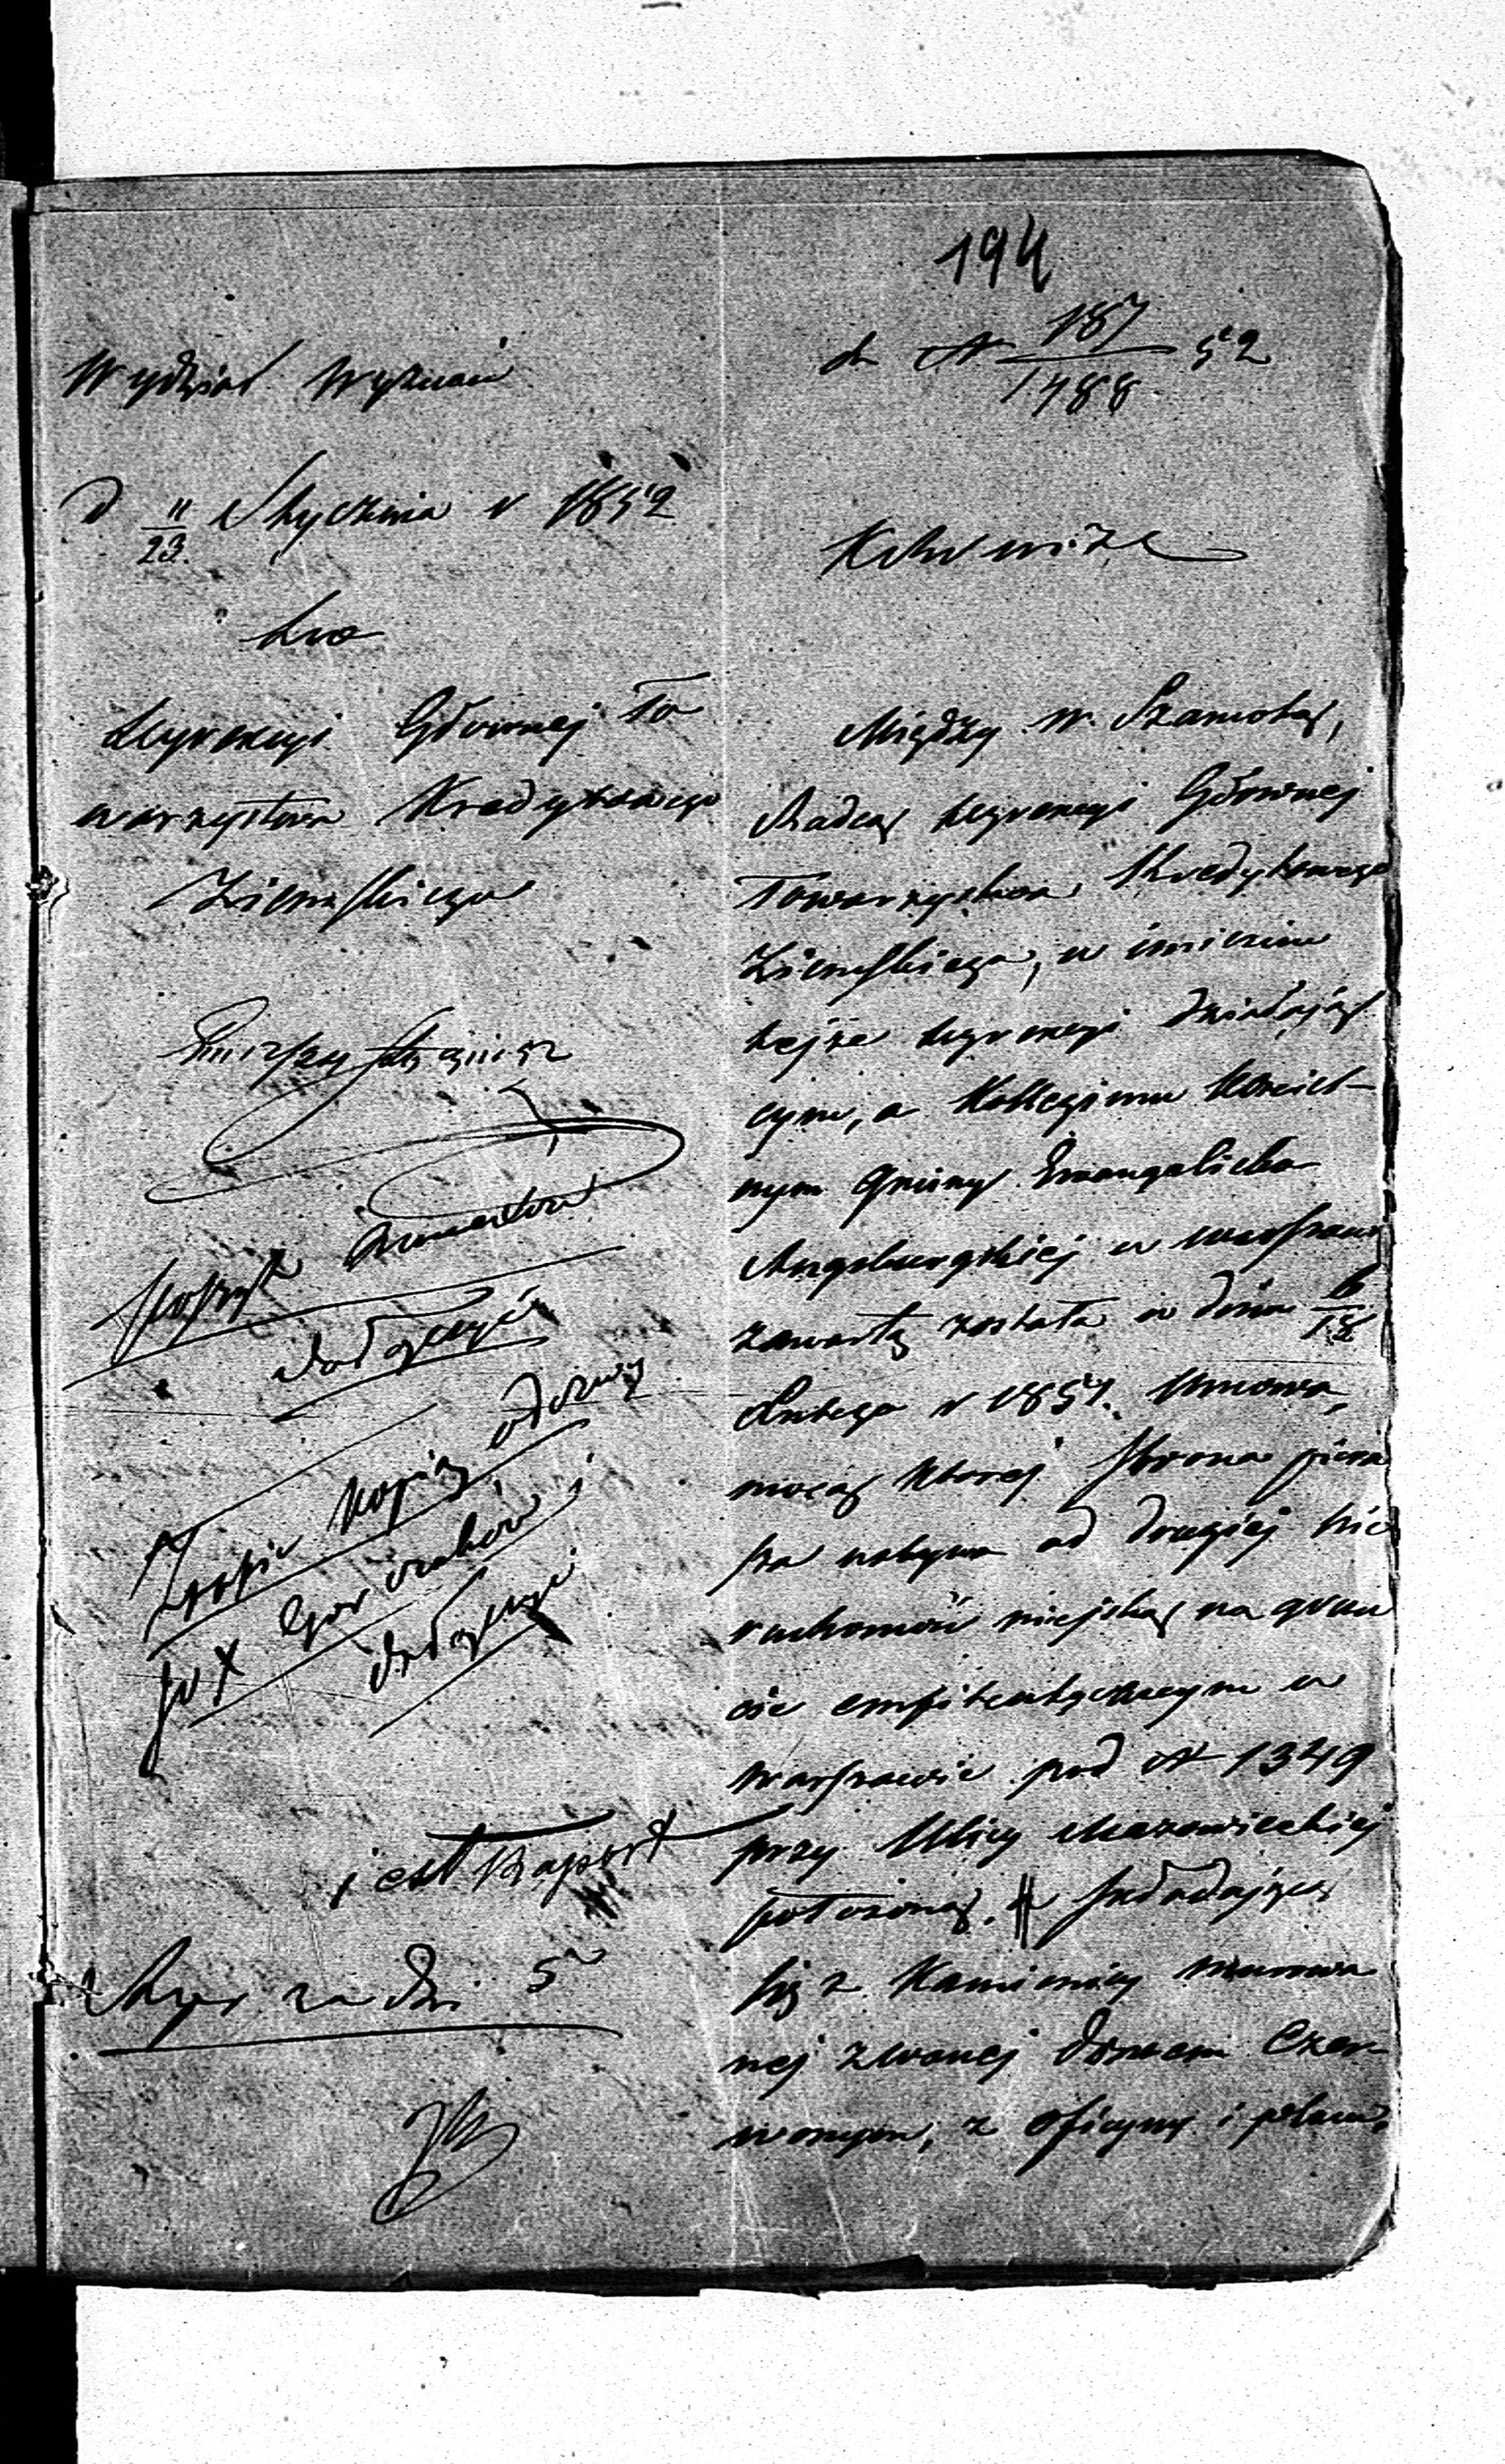 194
Wydział Wyznań
d N 187/1488 52
D 11/23. Stycznia r 1852
Do
Dyrekcyi Głównej To
warzystwa Kredytowego
Ziemskiego
dołączyć
Kopię odezwy
dołączyć
jest Raport
za dni 5
Między W. Szamotą,
Radcą Dyrekcyi Głównej
Towarzystwa Kredytowego
Ziemskiego, w imieniu
tejże Dyrekcyi działają
cym, a Kollegium Kościel-
nym Gminy Ewangelicko
Augsburgskiej w Warszawie
zawartą została w dniu 6/18
Lutego r 1851. Umowa,
mocą której strona pierw
sza nabywa od drugiej nie
ruchomość miejską na grun
cie emfiteutycznym w
Warszawie pod N 1349
przy Ulicy Mazowieckiej
położoną. składającą
się z Kamienicy murowa
nej zwanej Domem Czer-
wonym, z oficyny i placu,